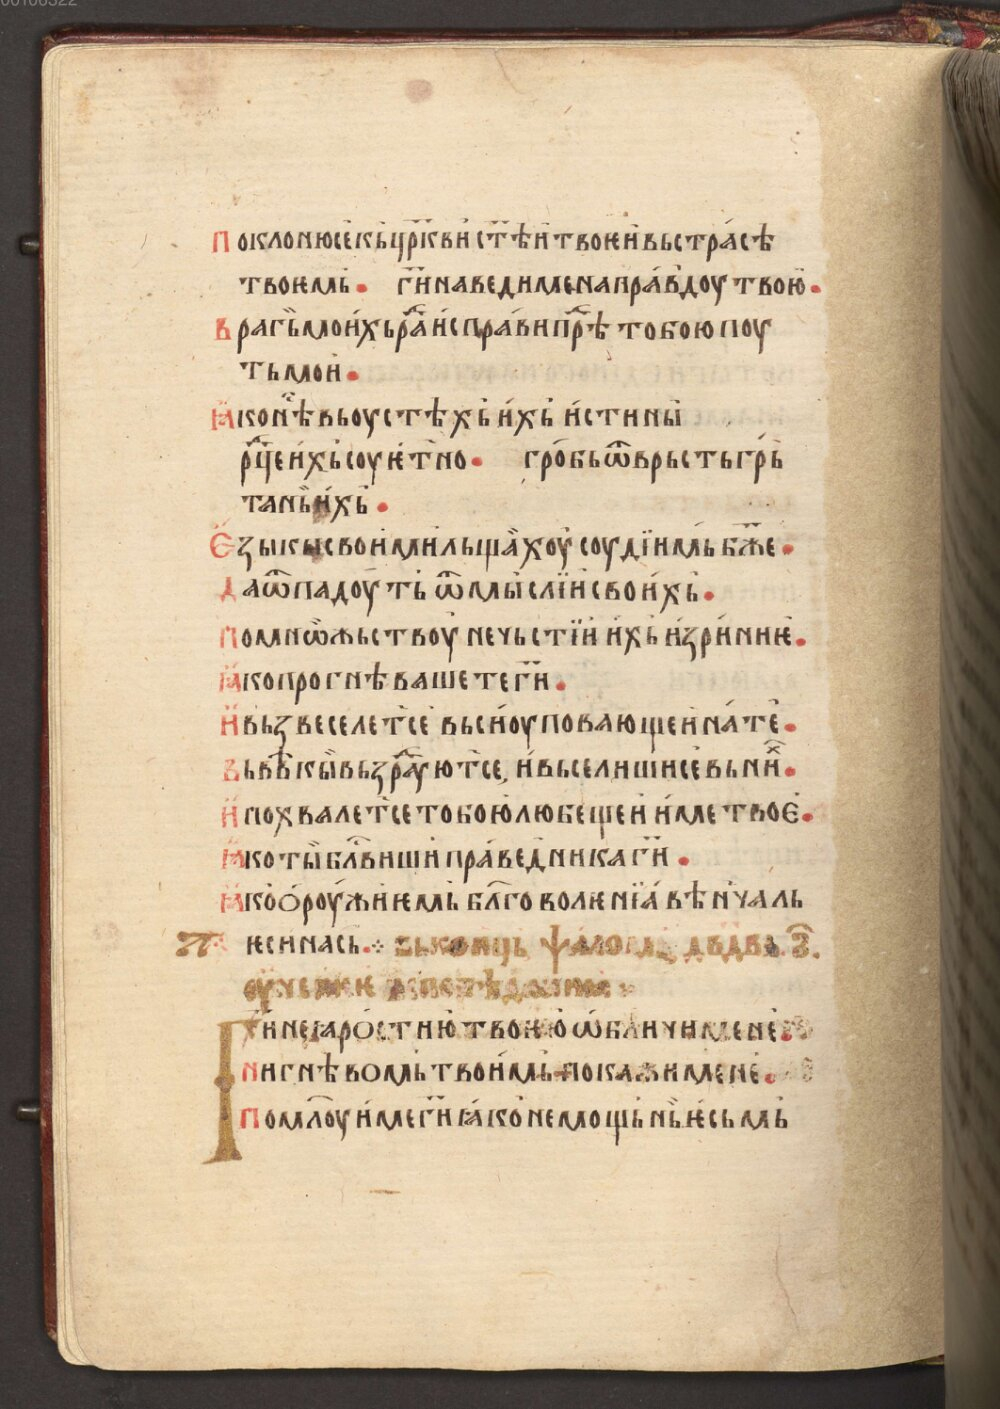 Поклоню се кь цр҃кви ст҃ѣи твоѥи вь страсѣ
твоѥмь • г҃и наведи ме на правдоу твою •
врагь моихь ра҃ исправи прѣ тобою поу
ть мои •
ꙗко нѣ вь оустѣхь ихь истины
ср҃це ихь соуѥтно • гробь ѿврьсть грь
тань ихь •
Езыкы своими льщахоу соуди имь б҃же •
да ѿпадоуть ѿ мыслїи своихь •
по мнѡжьствоу нечьстїи ихь изрини ѥ •
ꙗко прогнѣваше те г҃и •
И вьзвеселет се вьси оуповающеи на те •
вь вѣкы вьзра҃ують се, и вьселиши се вь ни •
И похвалет се тобою любещеи име твоѥ •
ꙗко ты бл҃виши праведника г҃и •
ꙗко ѻроужиѥмь бл҃говолѥнїа вѣнчаль
ѥси нась • вь коньць ѱаломь дв҃двь з҃.
Г҃и не ꙗростию твоѥю ѡбличи мене •
ни гнѣвомь твоимь покажи мене •
помл҃оуи ме г҃и ꙗко немощьнь ѥсьмь